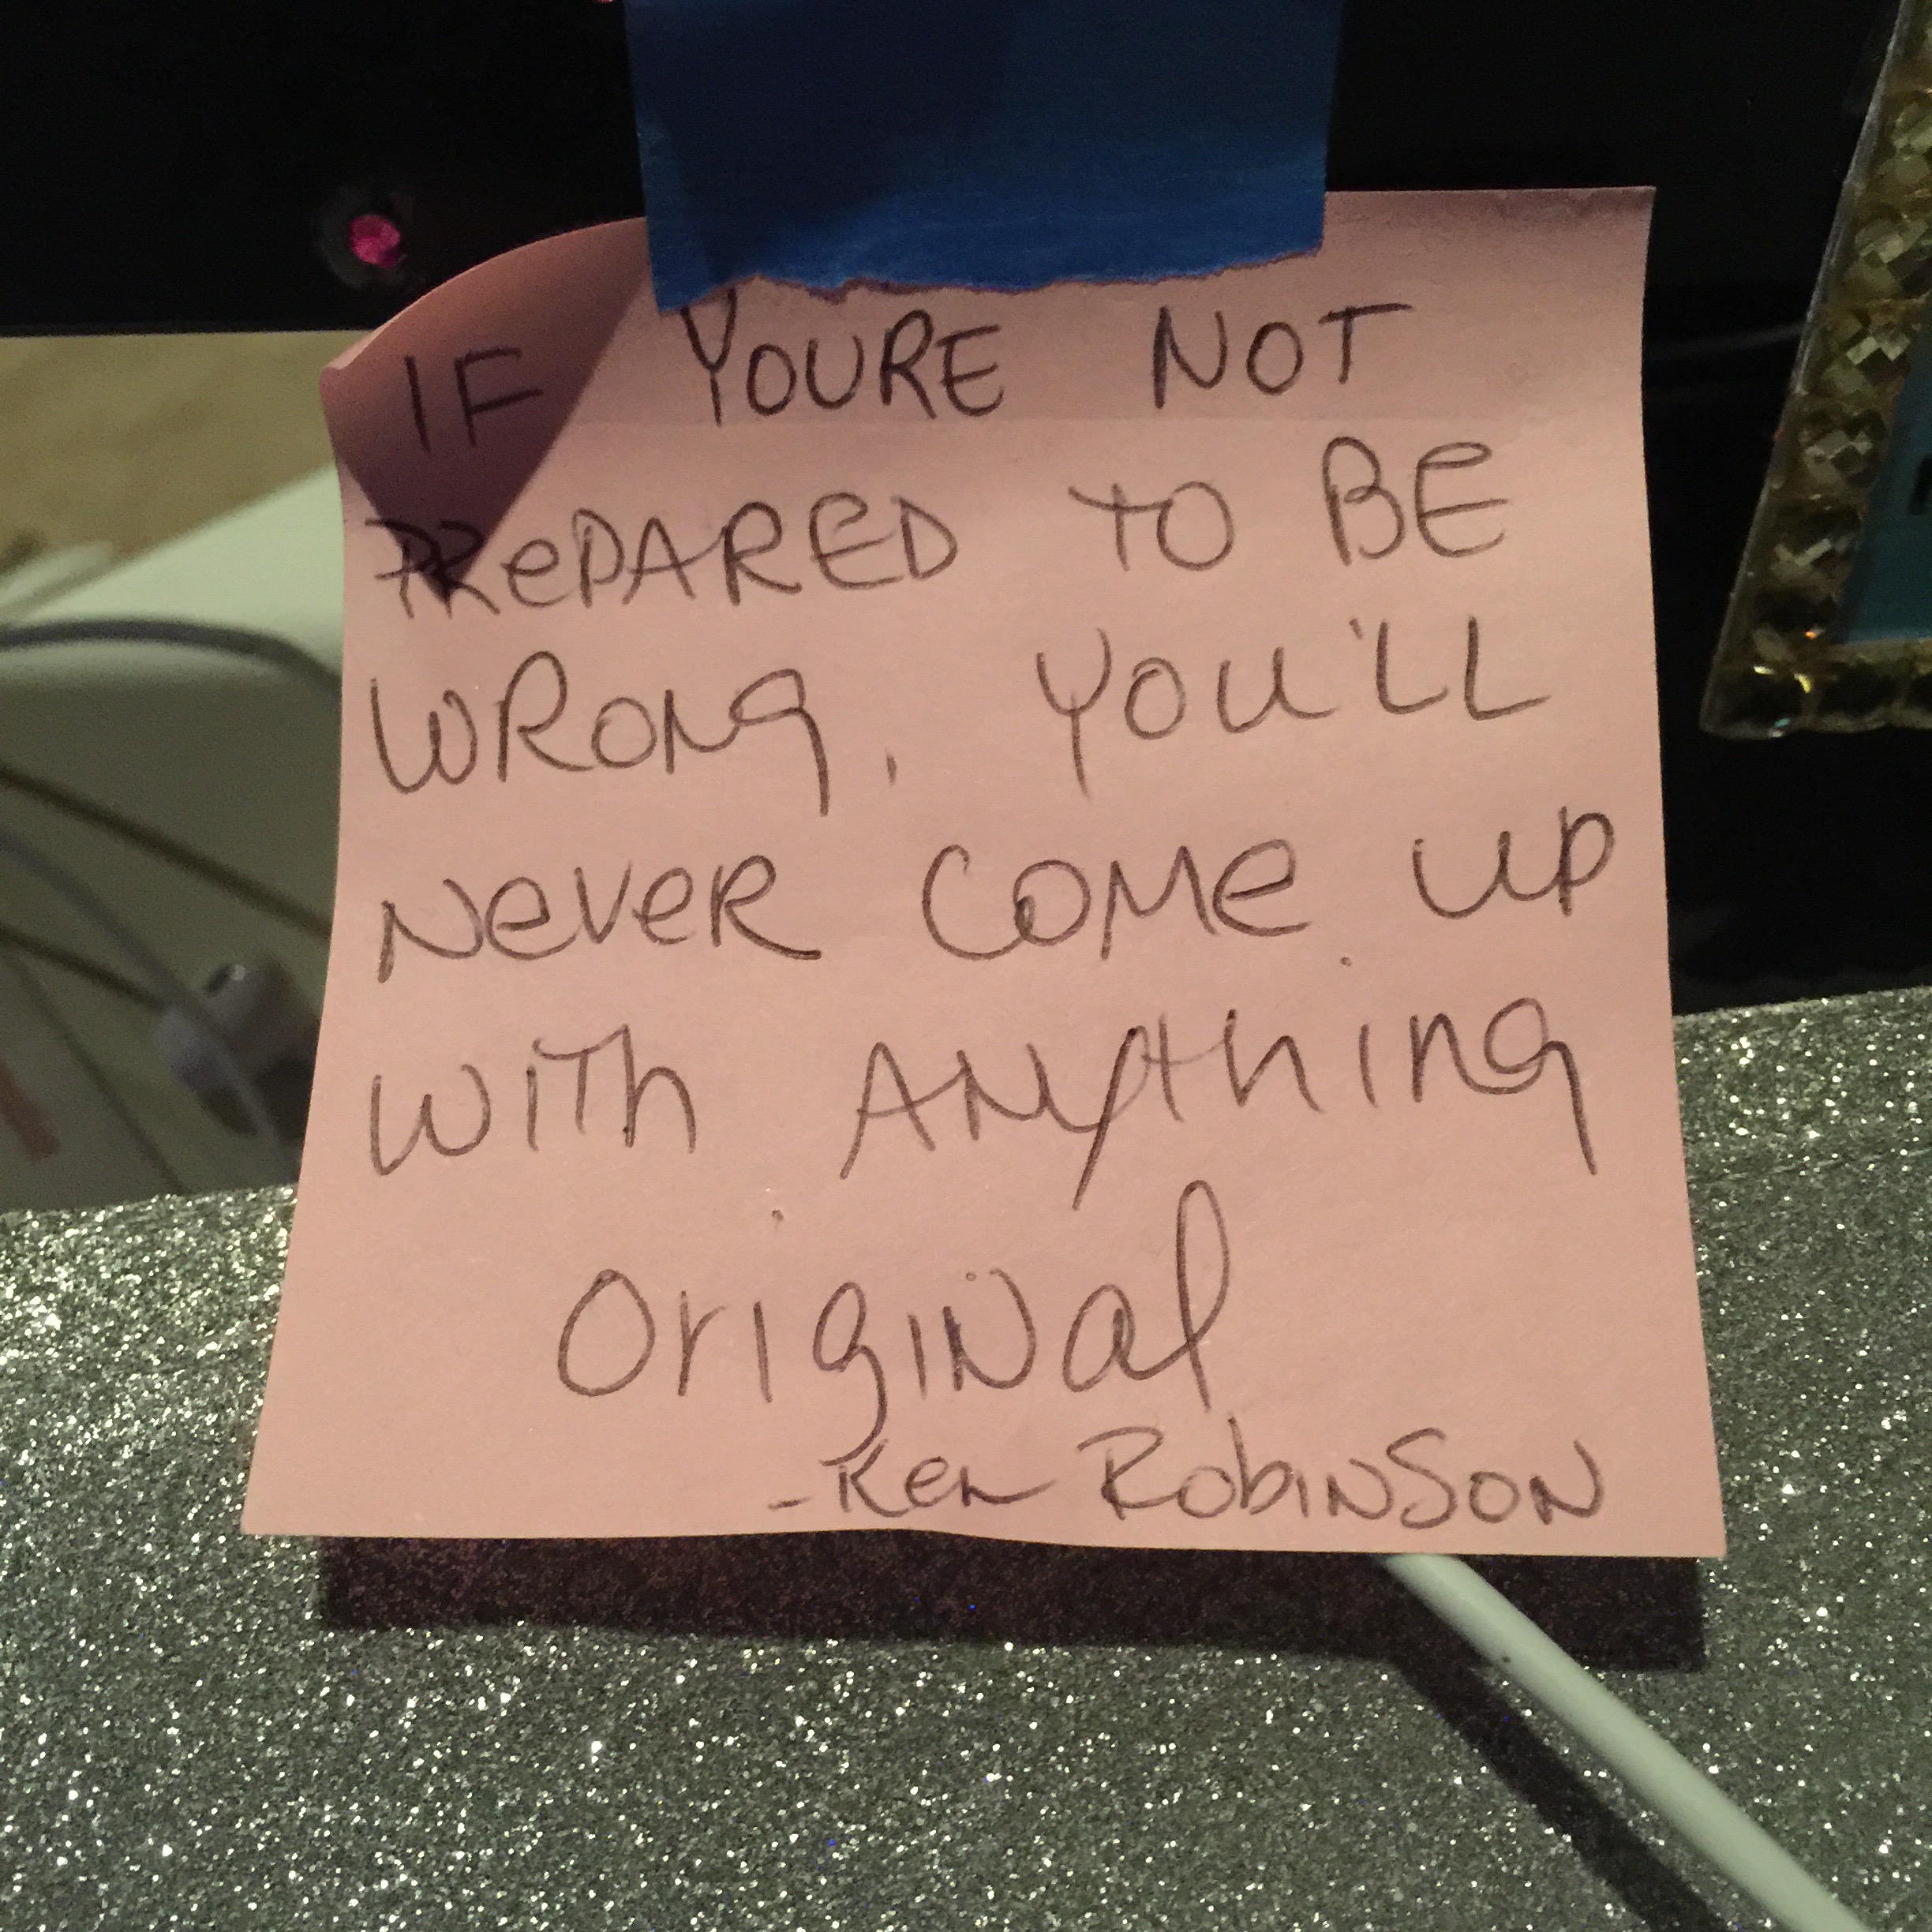 IF YOURE NOT
PRePARED TO BE
WRONg, YOU'LL
NeVeR COMe UP
WiTh ANythiNg
OrigiNal
-Ken RobiNSON